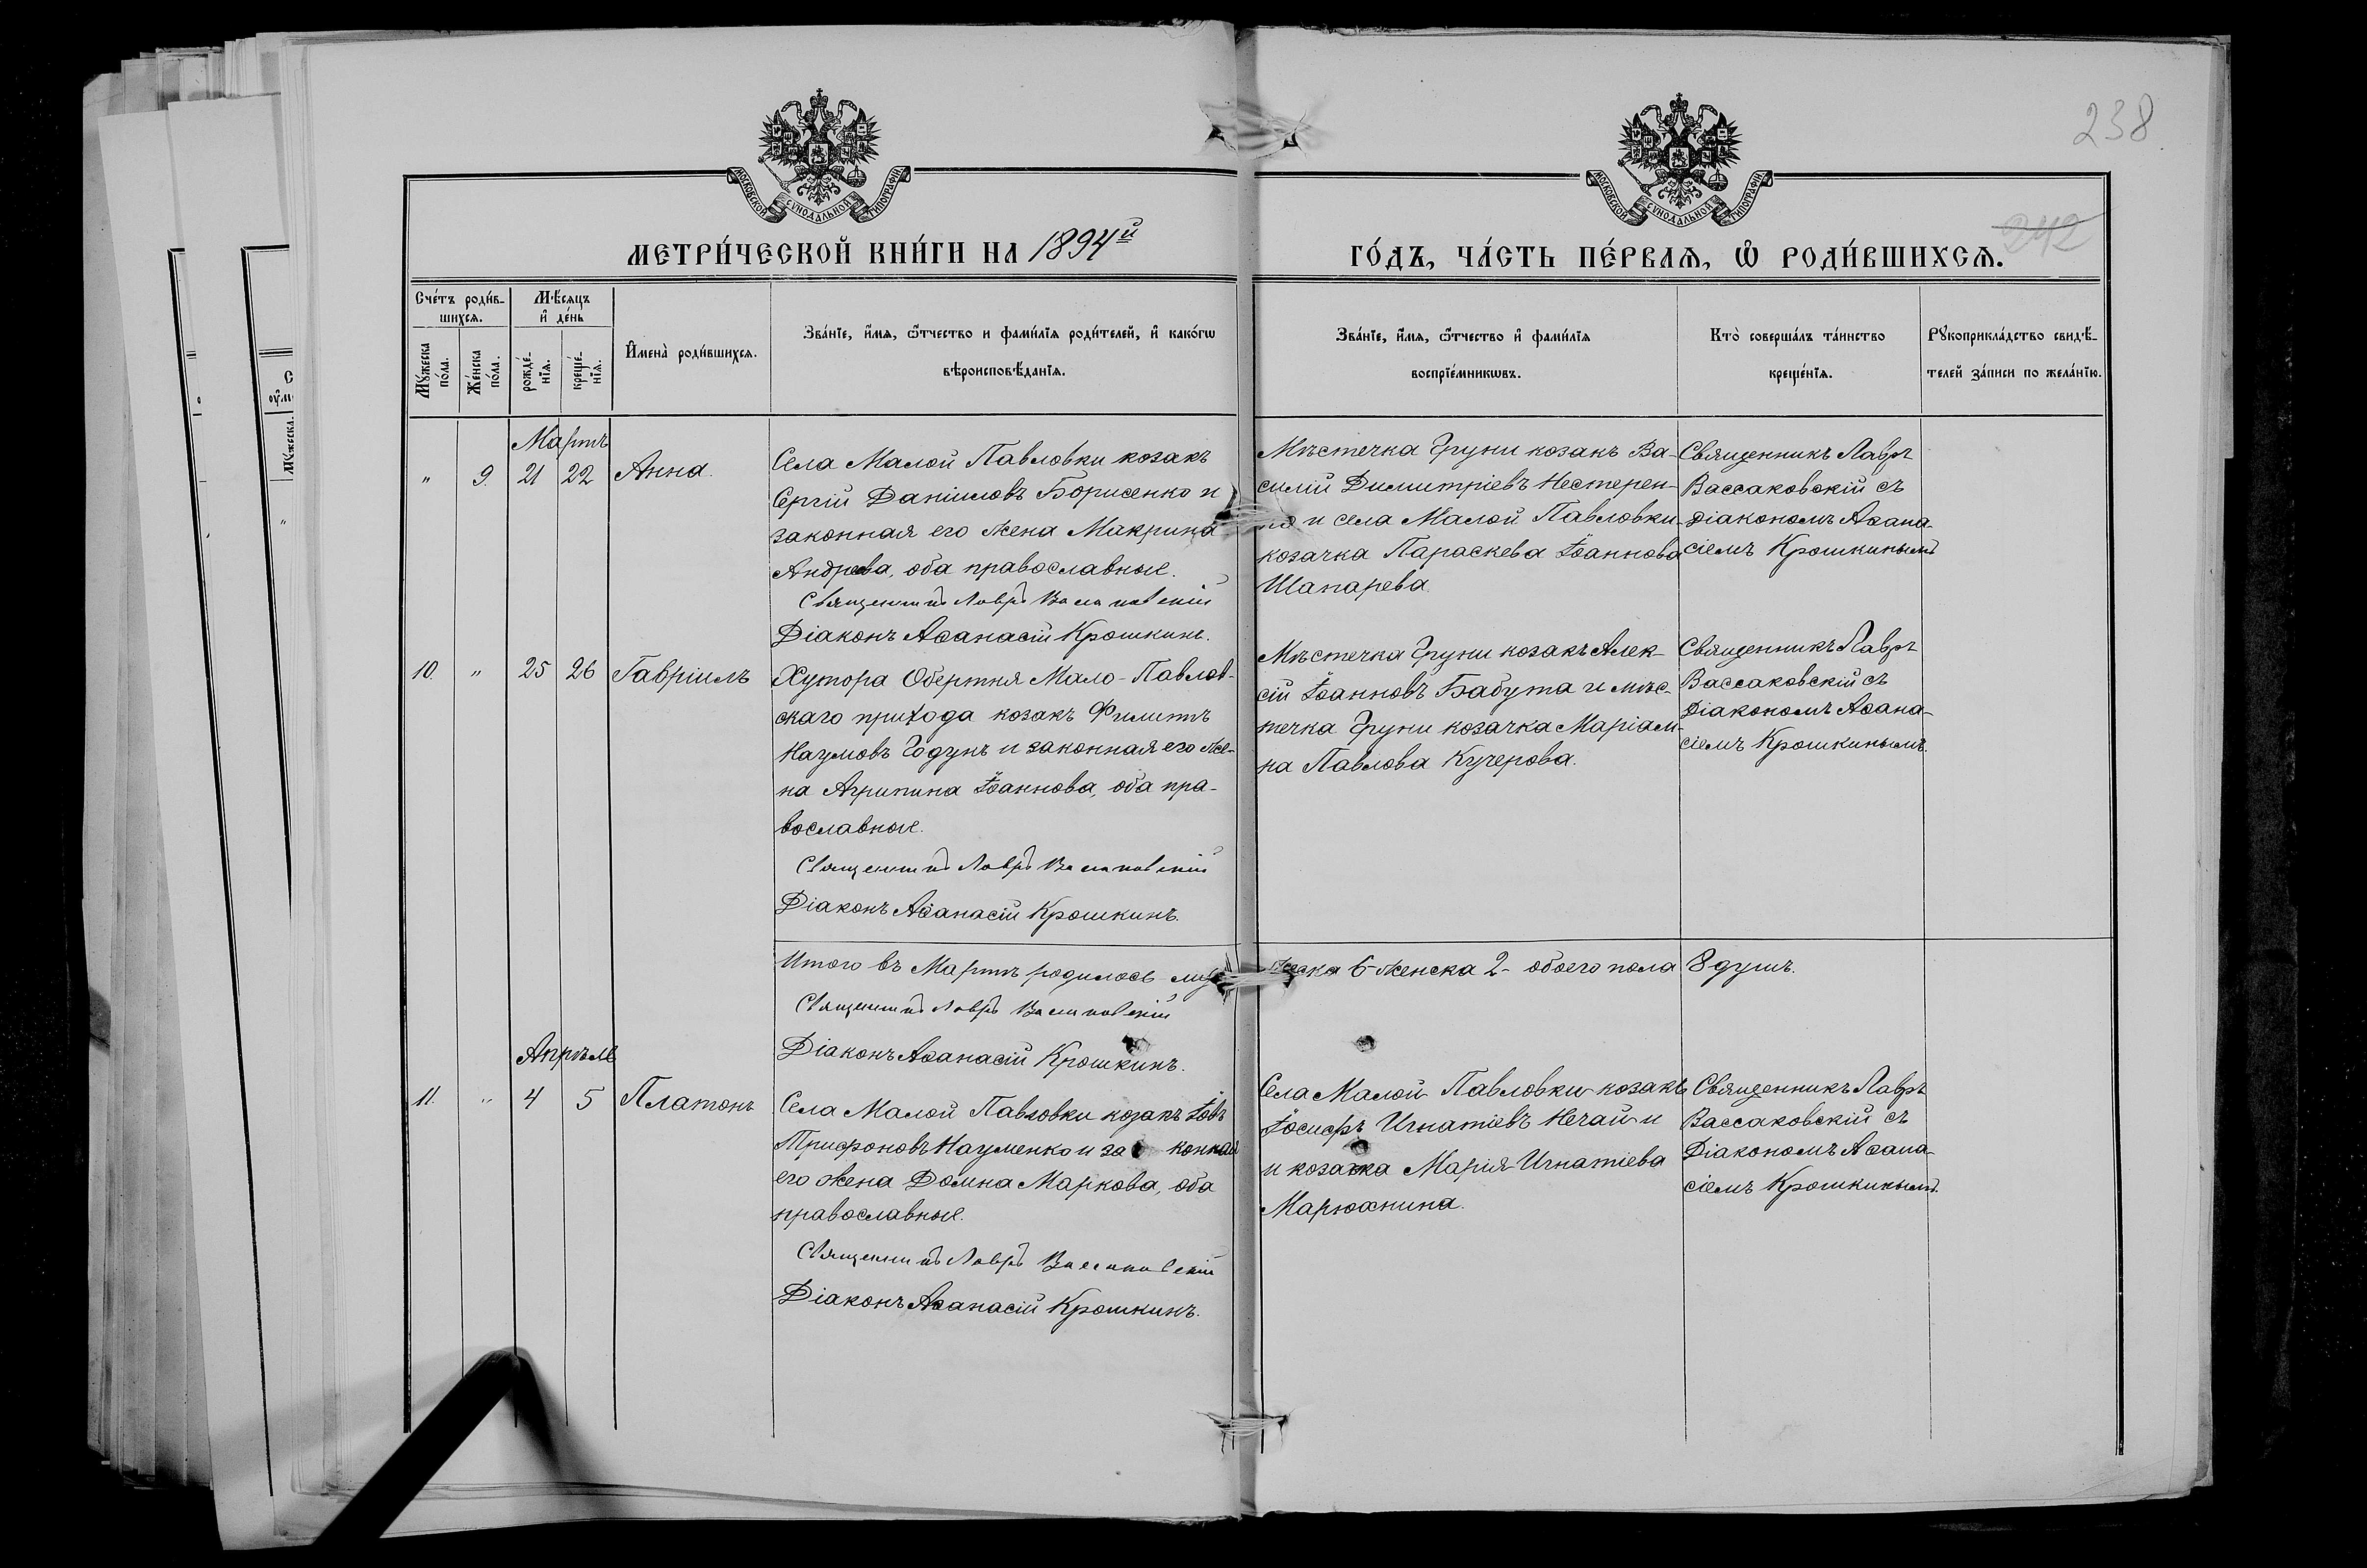 238
242
МОСКОВСКОЙ СѴНОДАЛЬНОЙ ТИПОГРАФІИ
МОСКОВСКОЙ СѴНОДАЛЬНОЙ ТИПОГРАФІИ
МЕТРИ́ЧЕСКОЙ КНИ́ГИ НА 1894й
ГО́ДЪ, ЧА́СТЬ ПЕ́РВАѦ, Ѽ РОДИ́ВШИХСѦ.
Сче́тъ роди́в-
шихсѧ.
Мѣ́сѧцъ
и҆ де́нь
Му́жеска по́ла.
Же́нска по́ла.
рожде́-
нїѧ.
креще́-
нїѧ.
И҆мена̀ роди́вшихсѧ.
Зва́нїе, и҆́мѧ, ѻ҆́тчество и фами́лїѧ роди́телей, и҆ како́гѡ
вѣроисповѣ́данїѧ.
Зва́нїе, и҆́мѧ, ѻ҆́тчество и҆ фами́лїѧ
воспрїе́мникѡвъ.
Кто̀ соверша́лъ та́инство
креще́нїѧ.
Рꙋкоприкла́дство свидѣ́-
телей за́писи по жела́нїю.
Мартъ
" 9. 21 22 Анна.
Села Малой Павловки козакъ
Сергій Даніиловъ Борисенко и
законная его жена Макрина
Андреева, оба православные.
Священникъ Лавръ Вассаковскій
Діаконъ Аѳанасій Крошкинъ.
Мѣстечка Груни козакъ Ва-
силій Димитріевъ Нестерен-
ко и села Малой Павловки
козачка Параскева Іоаннова
Шапарева.
Священникъ Лавръ
Вассаковскій съ
Діакономъ Аѳана-
сіемъ Крошкинымъ
10. " 25 26 Гавріилъ
Хутора Обертня Мало-Павлов-
скаго прихода козакъ Филиппъ
Наумовъ Годунъ и законная его же-
на Агрипина Іоаннова, оба пра-
вославные.
Священникъ Лавръ Вассаковскій
Діаконъ Аѳанасій Крошкинъ.
Мѣстечка Груни козакъ Алек-
сій Іоанновъ Бабута и мѣс-
течка Груни козачка Маріам-
на Павлова Кучерова.
Священникъ Лавръ
Вассаковскій съ
Діакономъ Аѳана-
сіемъ Крошкинымъ.
Итого въ Мартѣ родилось мужеска 6 женска 2 - обоего пола 8 душъ.
Священникъ Лавръ Вассаковскій
Діаконъ Аѳанасій Крошкинъ.
Апрѣль
11. " 4 5 Платонъ
Села Малой Павловки козакъ Іовъ
Трифоновъ Науменко и законная
его жена Домна Маркова, оба
православные.
Священникъ Лавръ Вассаковскій
Діаконъ Аѳанасій Крошкинъ.
Села Малой Павловки козакъ
Іосифъ Игнатіевъ Нечай и
и козачка Марія Игнатіева
Марюхнина.
Священникъ Лавръ
Вассаковскій съ
Діакономъ Аѳана-
сіемъ Крошкинымъ.